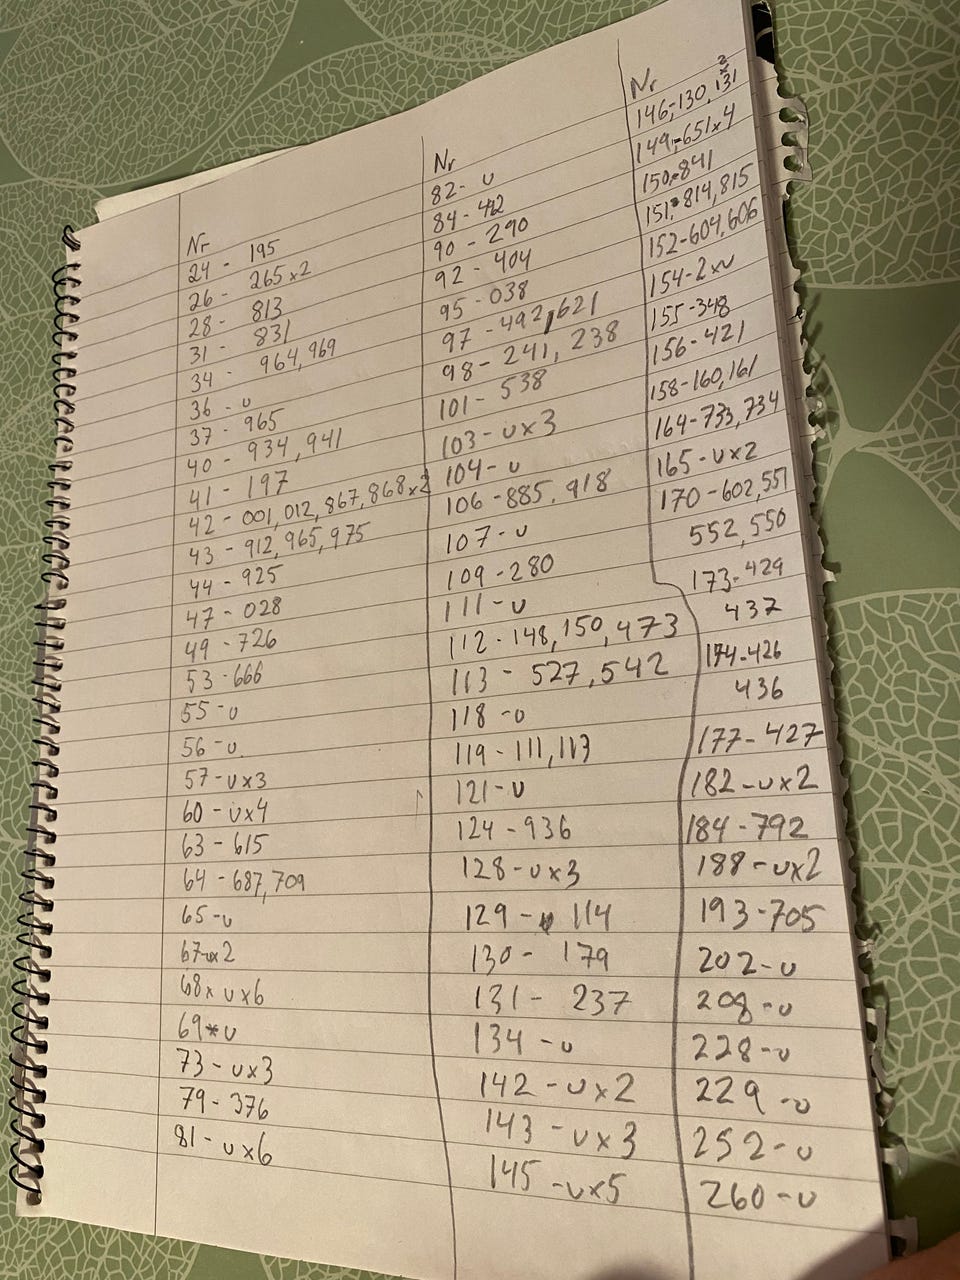 Nr
24 - 195
26 - 265x2
28 - 813
31 - 831
34 - 964,969
36 - u
37 - 965
40 - 934, 941
41 - 197
42 - 001, 012, 867, 868x2
43 - 912, 965, 975
44 - 925
47 - 028
49 - 726
53 - 666
55 - u
56 - u
57 - ux3
60 - ux4
63 - 615
64 - 687,709
65 - u
67-ux2
68x ux6
69*u
73 - ux3
79 - 376
81 - ux6
Nr
82 - u
84 - 412
90 - 290
92 - 404
95 - 038
97 - 492,621
98 - 241, 238
101 - 538
103 - ux3
104 - u
106 - 885, 918
107 - u
109 - 280
111 - u
112 - 148, 150, 473
113 - 527, 542
118 - u
119 - 111, 113
121 - u
124 - 936
128 - ux3
129 - 114
130 - 179
131 - 237
134 - u
142 - ux2
143 - ux3
145 - ux5
Nr
146-130, 131 x2
149-651x4
150-841
151-814, 815
152-604, 606
154-2xu
155-348
156-421
158-160, 161
164-733, 734
165-ux2
170-602, 551
552, 550
173-429
437
174-426
436
177-427
182-ux2
184-792
188-ux2
193-705
202-u
208-u
228-u
229-u
252-u
260-u